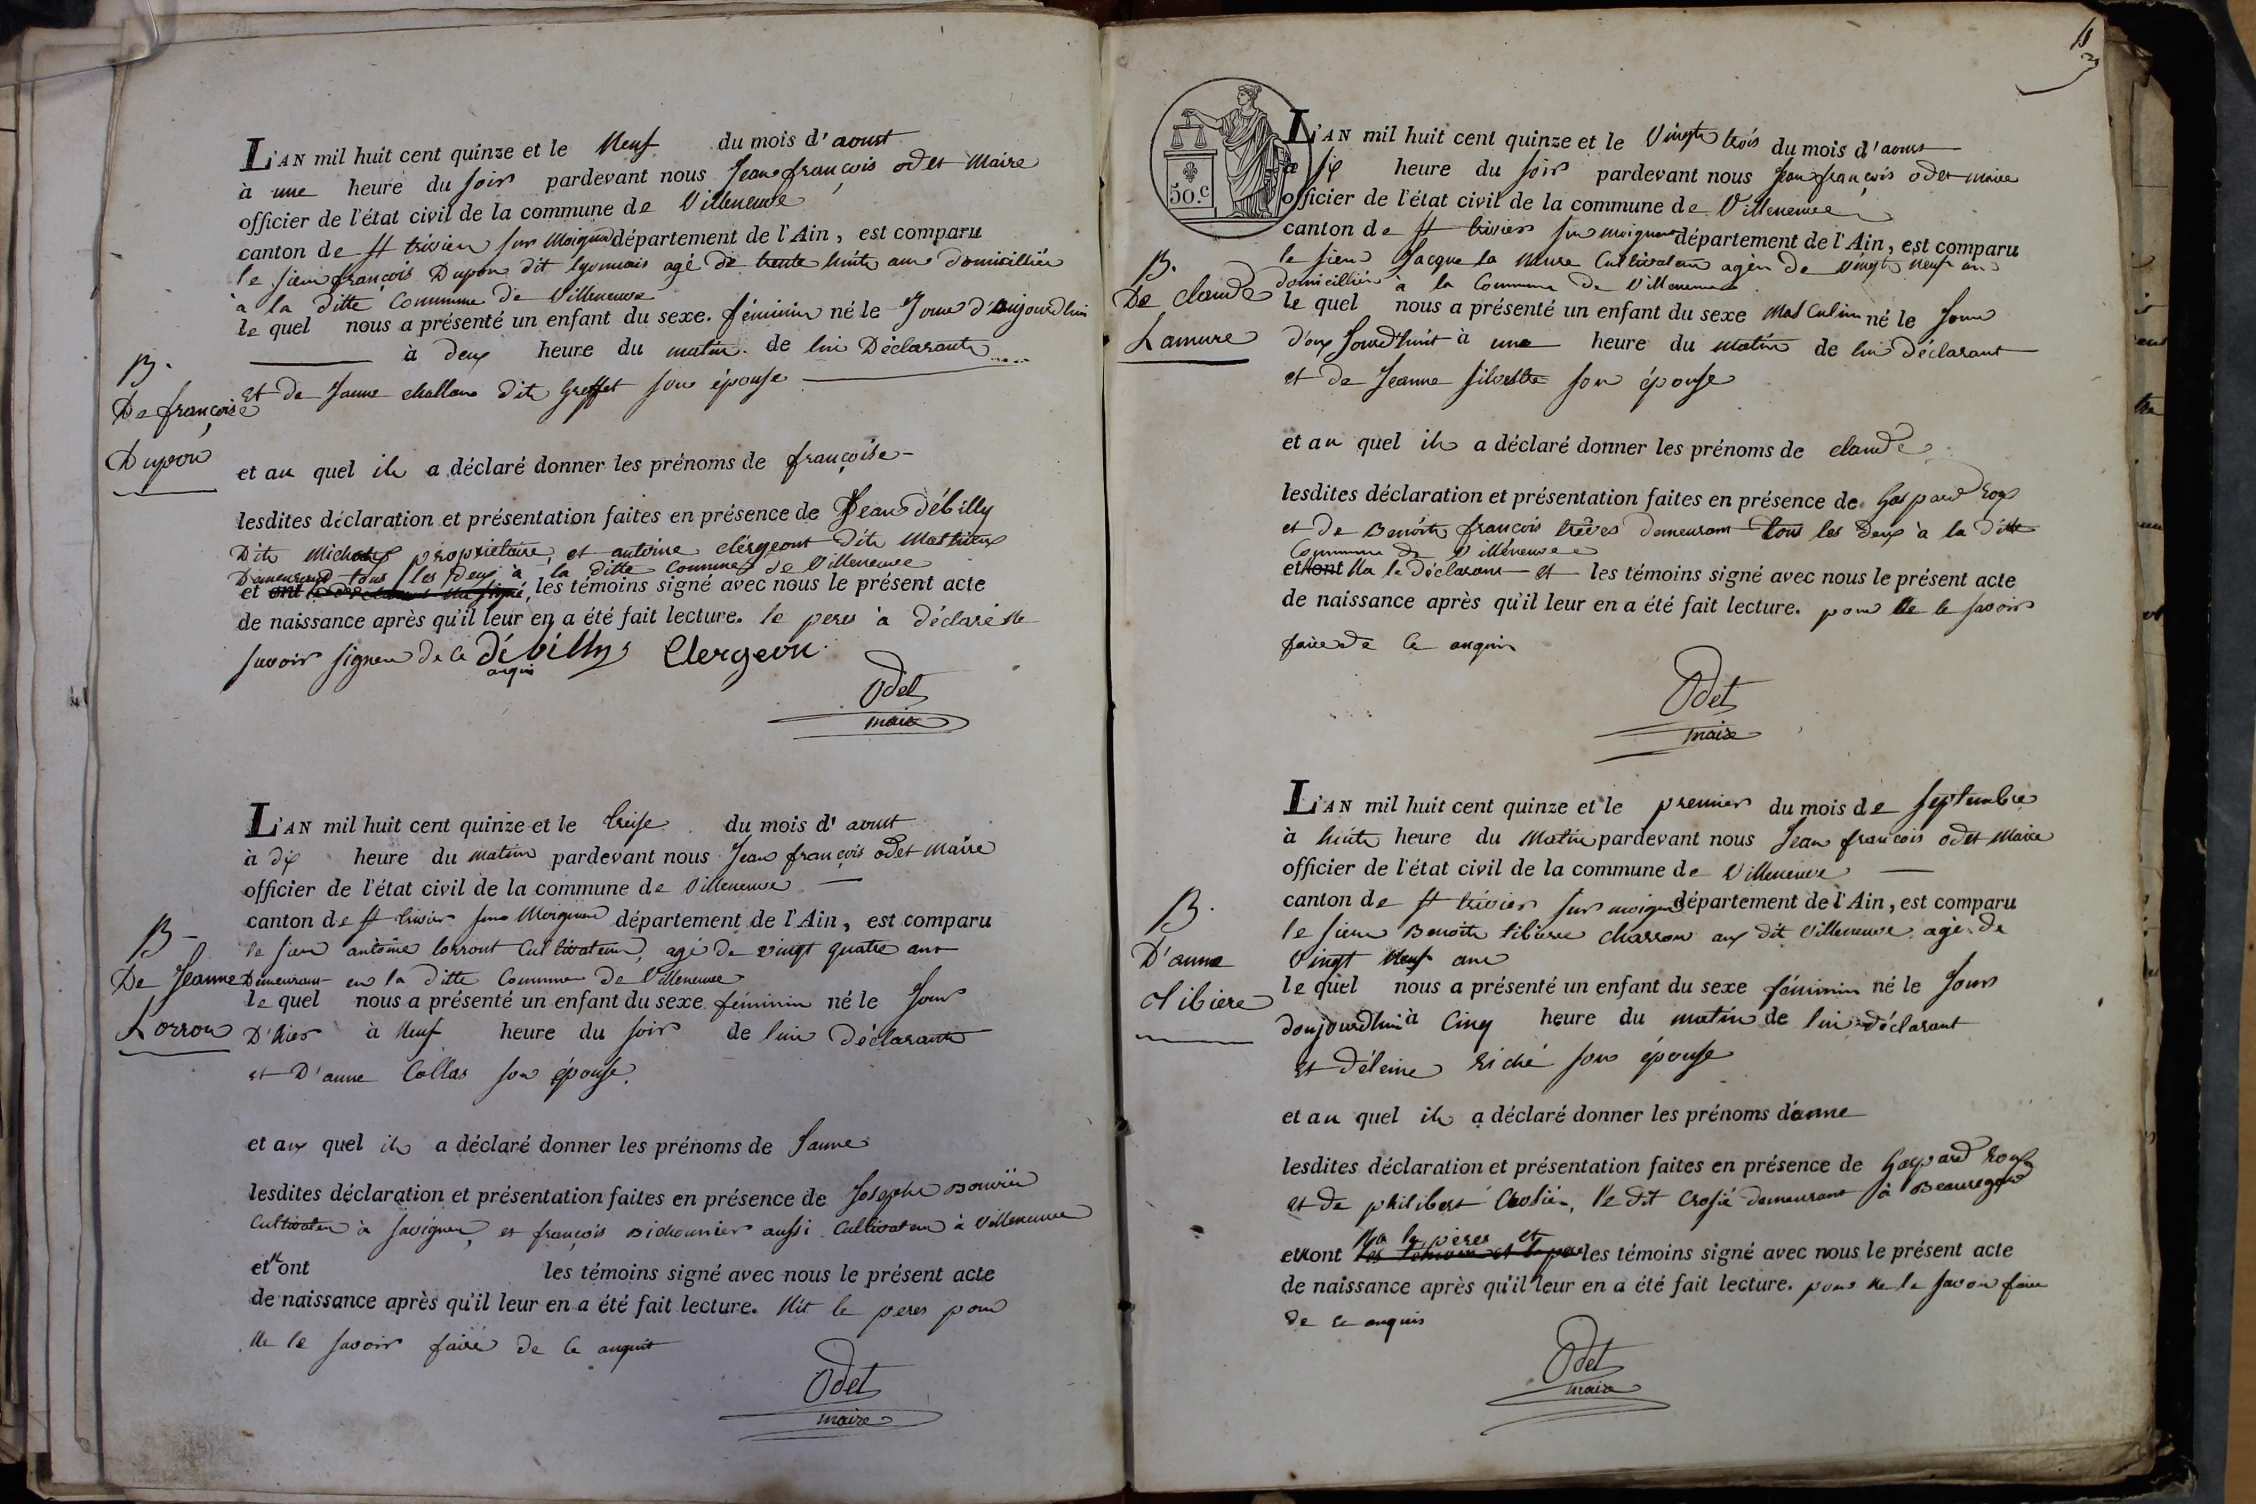 L'AN mil huit cent quinze et le Neuf du mois d'aoust
à une heure du soir pardevant nous Jean françois odet Maire
officier de l'état civil de la commune de Villeneuve
canton de st trivier sur Moignen département de l'Ain, est comparu
le sieur françois Dupon dit lyonnais agé de trente huit ans domicillié
à la ditte Commune de Villeneuve
le quel nous a présenté un enfant du sexe. féminin né le Jour d'aujourd'hui
à deux heure du matin. de lui Déclarant
B.
et de Janne challan dite Greffet son épouse
De françoise
Dupon
et au quel il a déclaré donner les prénoms de françoise
lesdites déclaration et présentation faites en présence de Jean débilly
Dit propriétaire, et antoine clérgeont dit Mathieux
Demeurand tous les deux à la ditte Commune de Villeneuve
et ont les témoins signé avec nous le présent acte
de naissance après qu'il leur en a été fait lecture. le peres à déclaré Ne
savoir signer de ce débilly Clergeon
anquis
Odet
maire
L'AN mil huit cent quinze et le treise du mois d'aoust
à dix heure du matin pardevant nous Jean françois odet Maire
officier de l'état civil de la commune de Villeneuve
canton de st trivier sur Moignen département de l'Ain, est comparu
B
le sieur antoine lorront Cultivateur, agé de vingt quatre ans
De Jeanne
Demeurant en la ditte Commune de Villeneuve
le quel nous a présenté un enfant du sexe féminin né le Jour
Lorron
D'hier à Neuf heure du soir de lui déclarant
et D'anne Collas son épouse.
et au quel il a déclaré donner les prénoms de Janne
lesdites déclaration et présentation faites en présence de Josephe Bouvier
Cultivateur à Savigneu, et françois Bichonnier aussi Cultivateur à Villeneuve
et ont les témoins signé avec nous le présent acte
de naissance après qu'il leur en a été fait lecture. Nit le peres pour
Ne le savoir faire de ce anquit
Odet
maire
50.c
L'AN mil huit cent quinze et le Vingt trois du mois d'aoust
à six heure du soir pardevant nous Jean françois odet maire
officier de l'état civil de la commune de Villeneuve
canton de st trivier sur moignen département de l'Ain, est comparu
B.
le sieur Jacque la Mure Cultivateur agér de vingt Neuf ans
De claude
domicillier à la Commune de Villeneuve
le quel nous a présenté un enfant du sexe Masculin né le Jour
Lamure
d'oujourd'huit à une heure du Matin de lui déclarant
et de Jeanne Silvestre son épouse
et au quel il a déclaré donner les prénoms de claude
lesdites déclaration et présentation faites en présence de Gaspard
et de Benoite françois trêves demeurant tous les deux à la ditte
Commune de Villeneuve
et ont Na le déclarant et les témoins signé avec nous le présent acte
de naissance après qu'il leur en a été fait lecture. pour Ne le savoir
faire de Ce anquis
Odet
maire
L'AN mil huit cent quinze et le premier du mois de septembre
à huit heure du Matin pardevant nous Jean francois odet Maire
officier de l'état civil de la commune de Villeneuve
canton de st trivier sur moignen département de l'Ain, est comparu
B.
le sieur Benoite tibiere charron aux dit Villeneuve agé de
D'anne
Vingt Neuf ans
tibiere
le quel nous a présenté un enfant du sexe féminin né le Jour
doujourdhui à Cinq heure du matin de lui déclarant
et déleine Riché son épouse
et au quel il a déclaré donner les prénoms d'anne
lesdites déclaration et présentation faites en présence de Gaspard
et de philibert Crosier, le dit Crosié demeurant à Beauregard
Na le peres et
et ont les témoins signé avec nous le présent acte
de naissance après qu'il leur en a été fait lecture. pour Ne le savoir faire
de ce anquis
Odet
maire